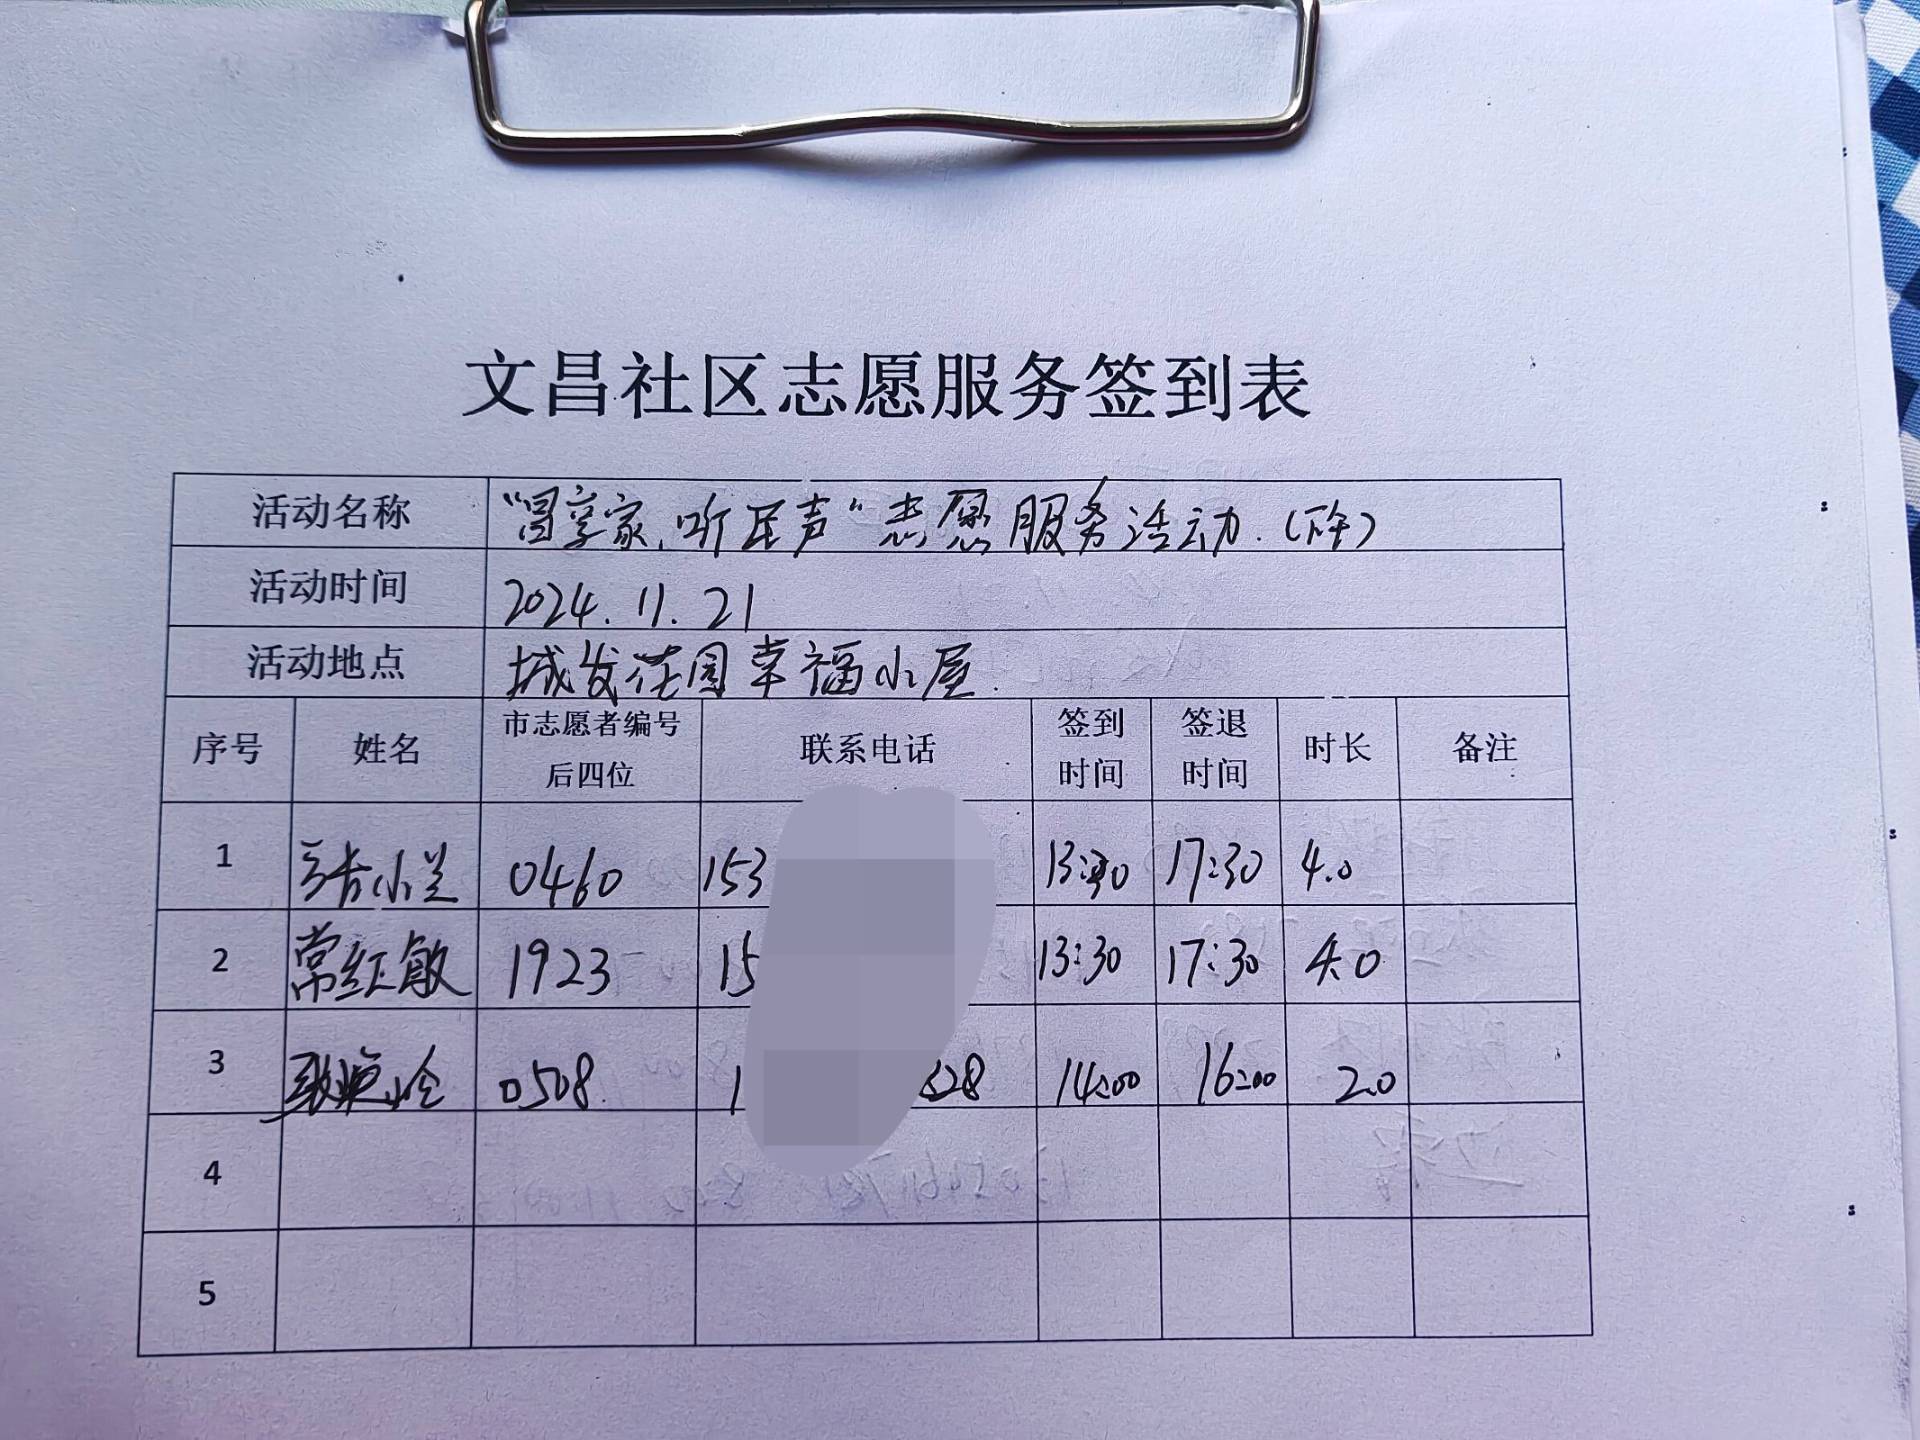 文昌社区志愿服务签到表
活动名称 "昌享家,听民声"志愿服务活动.(下午)
活动时间 2024.11.21
活动地点 城发花园幸福小屋.
序号 姓名 市志愿者编号后四位 联系电话 签到时间 签退时间 时长 备注
1 张小兰 0460 153 13:30 17:30 4.0
2 常红敏 1923 15 13:30 17:30 4.0
3 0508. 1 28 14:00 16:00 2.0
4
5